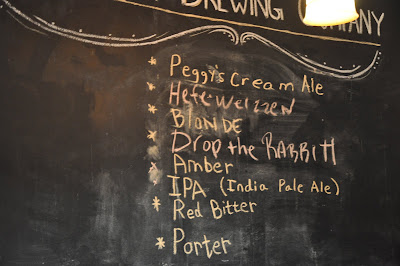 BREWING COMPANY
* Peggy's Cream Ale
* Hefeweizen
* BLONDE
* Drop the RABBIT
* Amber
* IPA (India Pale Ale)
* Red Bitter
* Porter